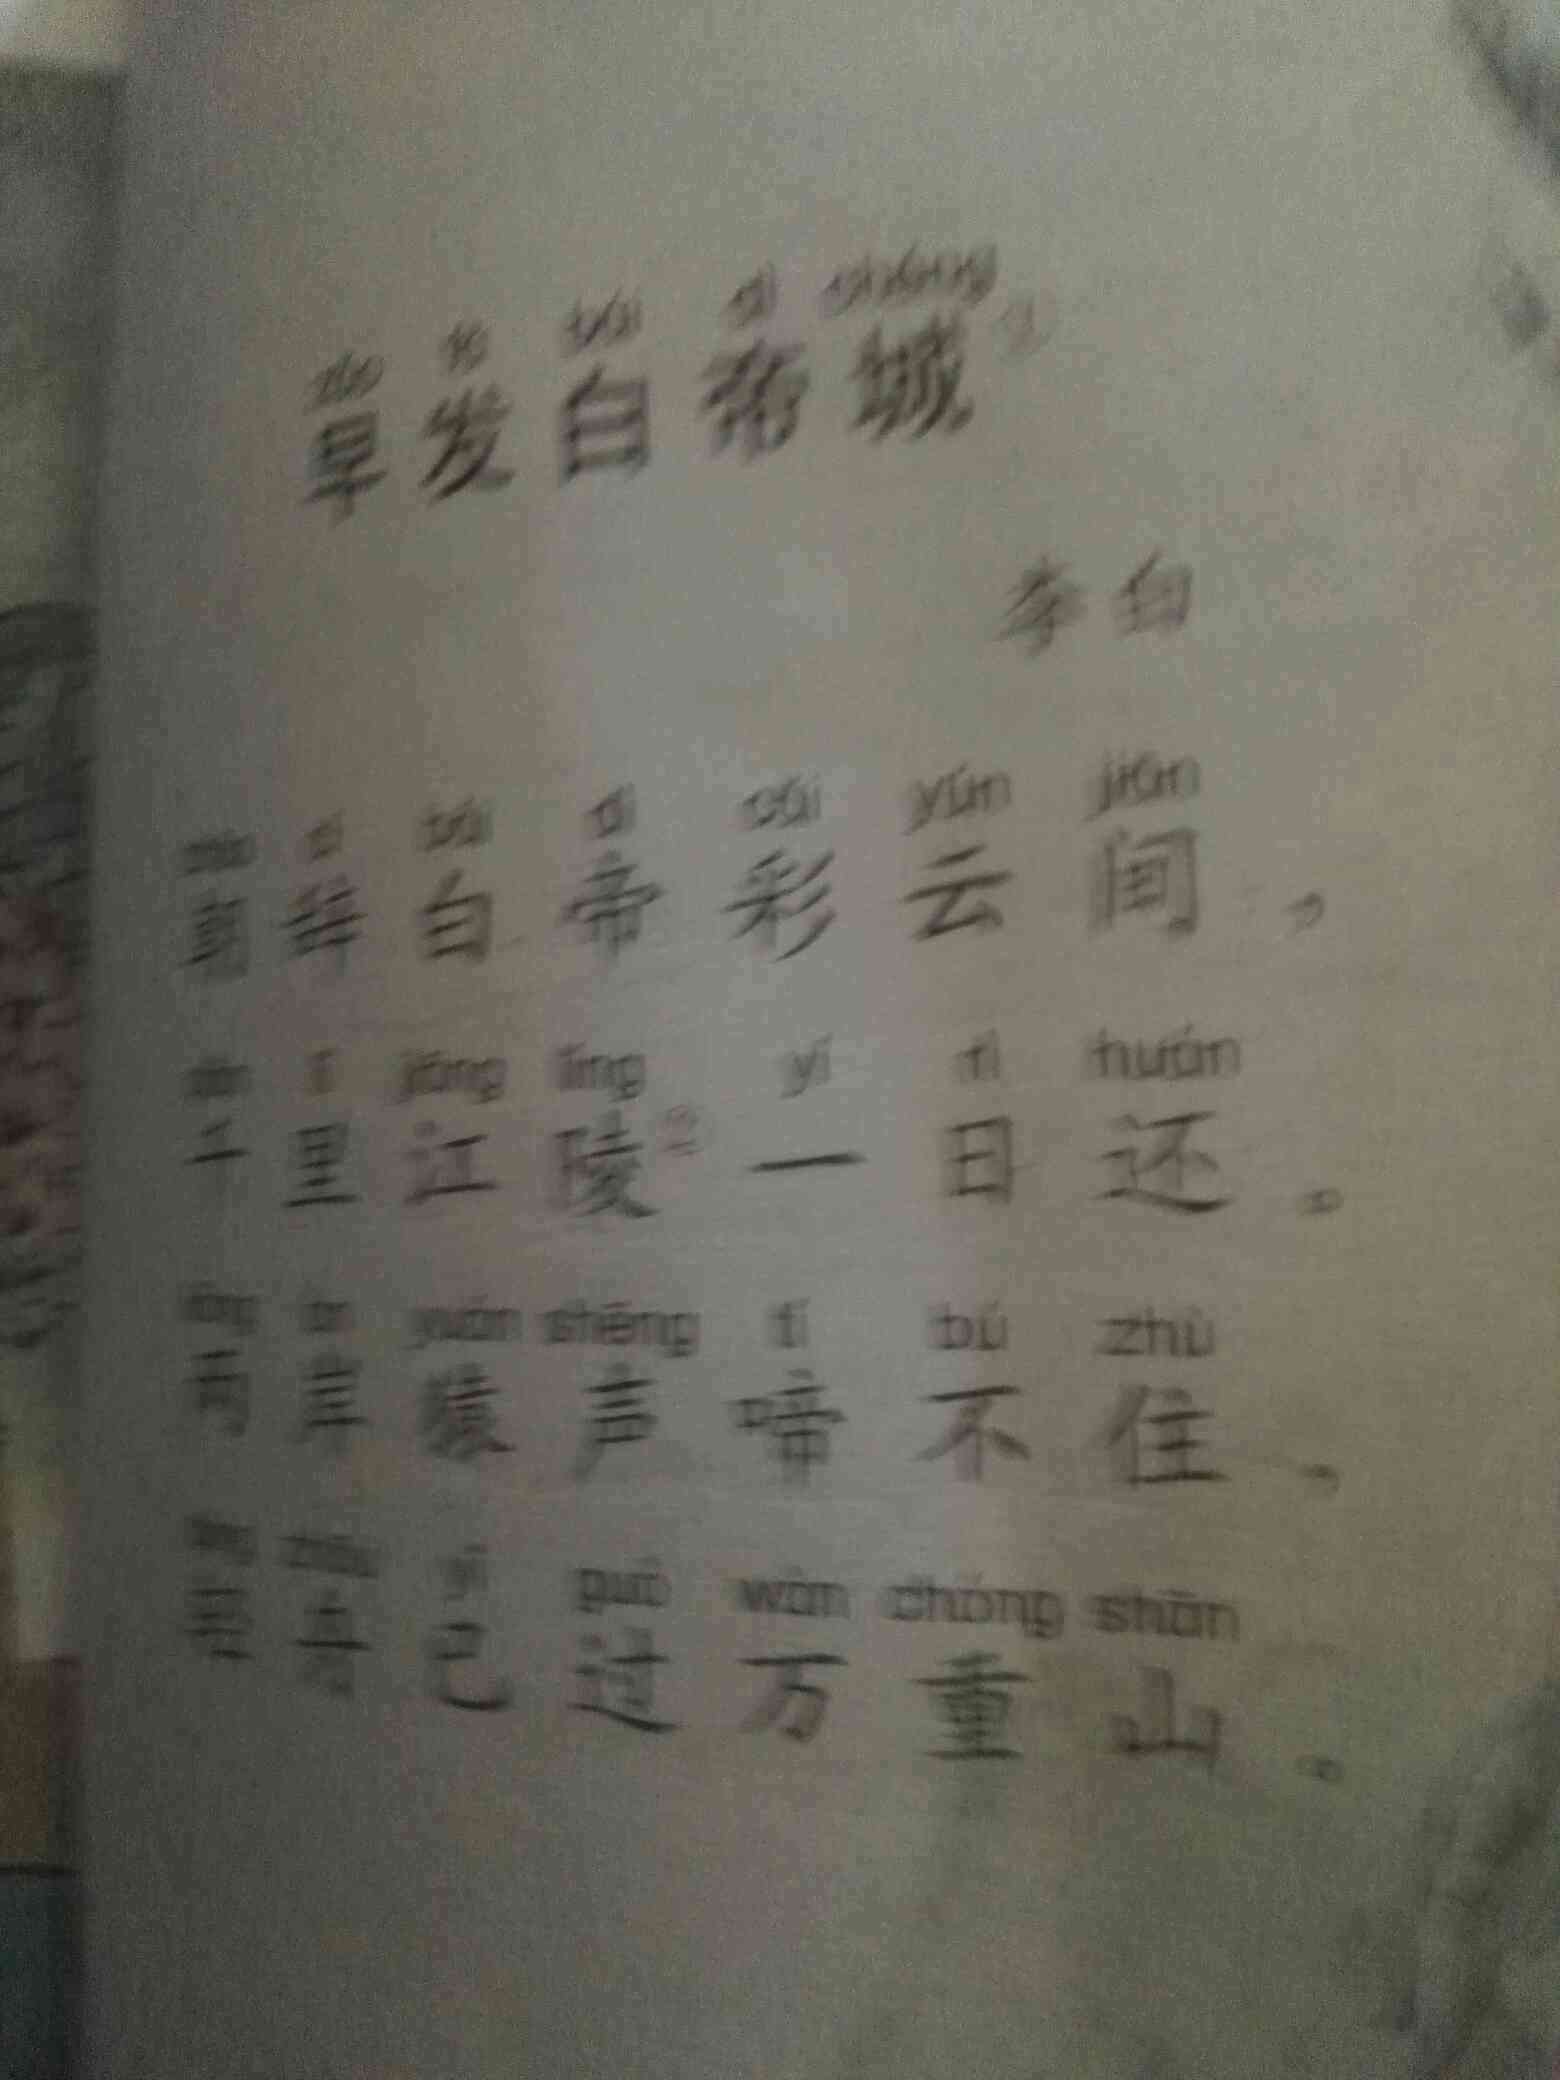 zǎo fā bái dì chéng
早发白帝城①
李白
zhāo cí bái dì cǎi yún jiān
朝辞白帝彩云间，
qiān lǐ jiāng líng yí rì huán
千里江陵②一日还。
liǎng àn yuán shēng tí bú zhù
两岸猿声啼不住，
qīng zhōu yǐ guò wàn chóng shān
轻舟已过万重山。